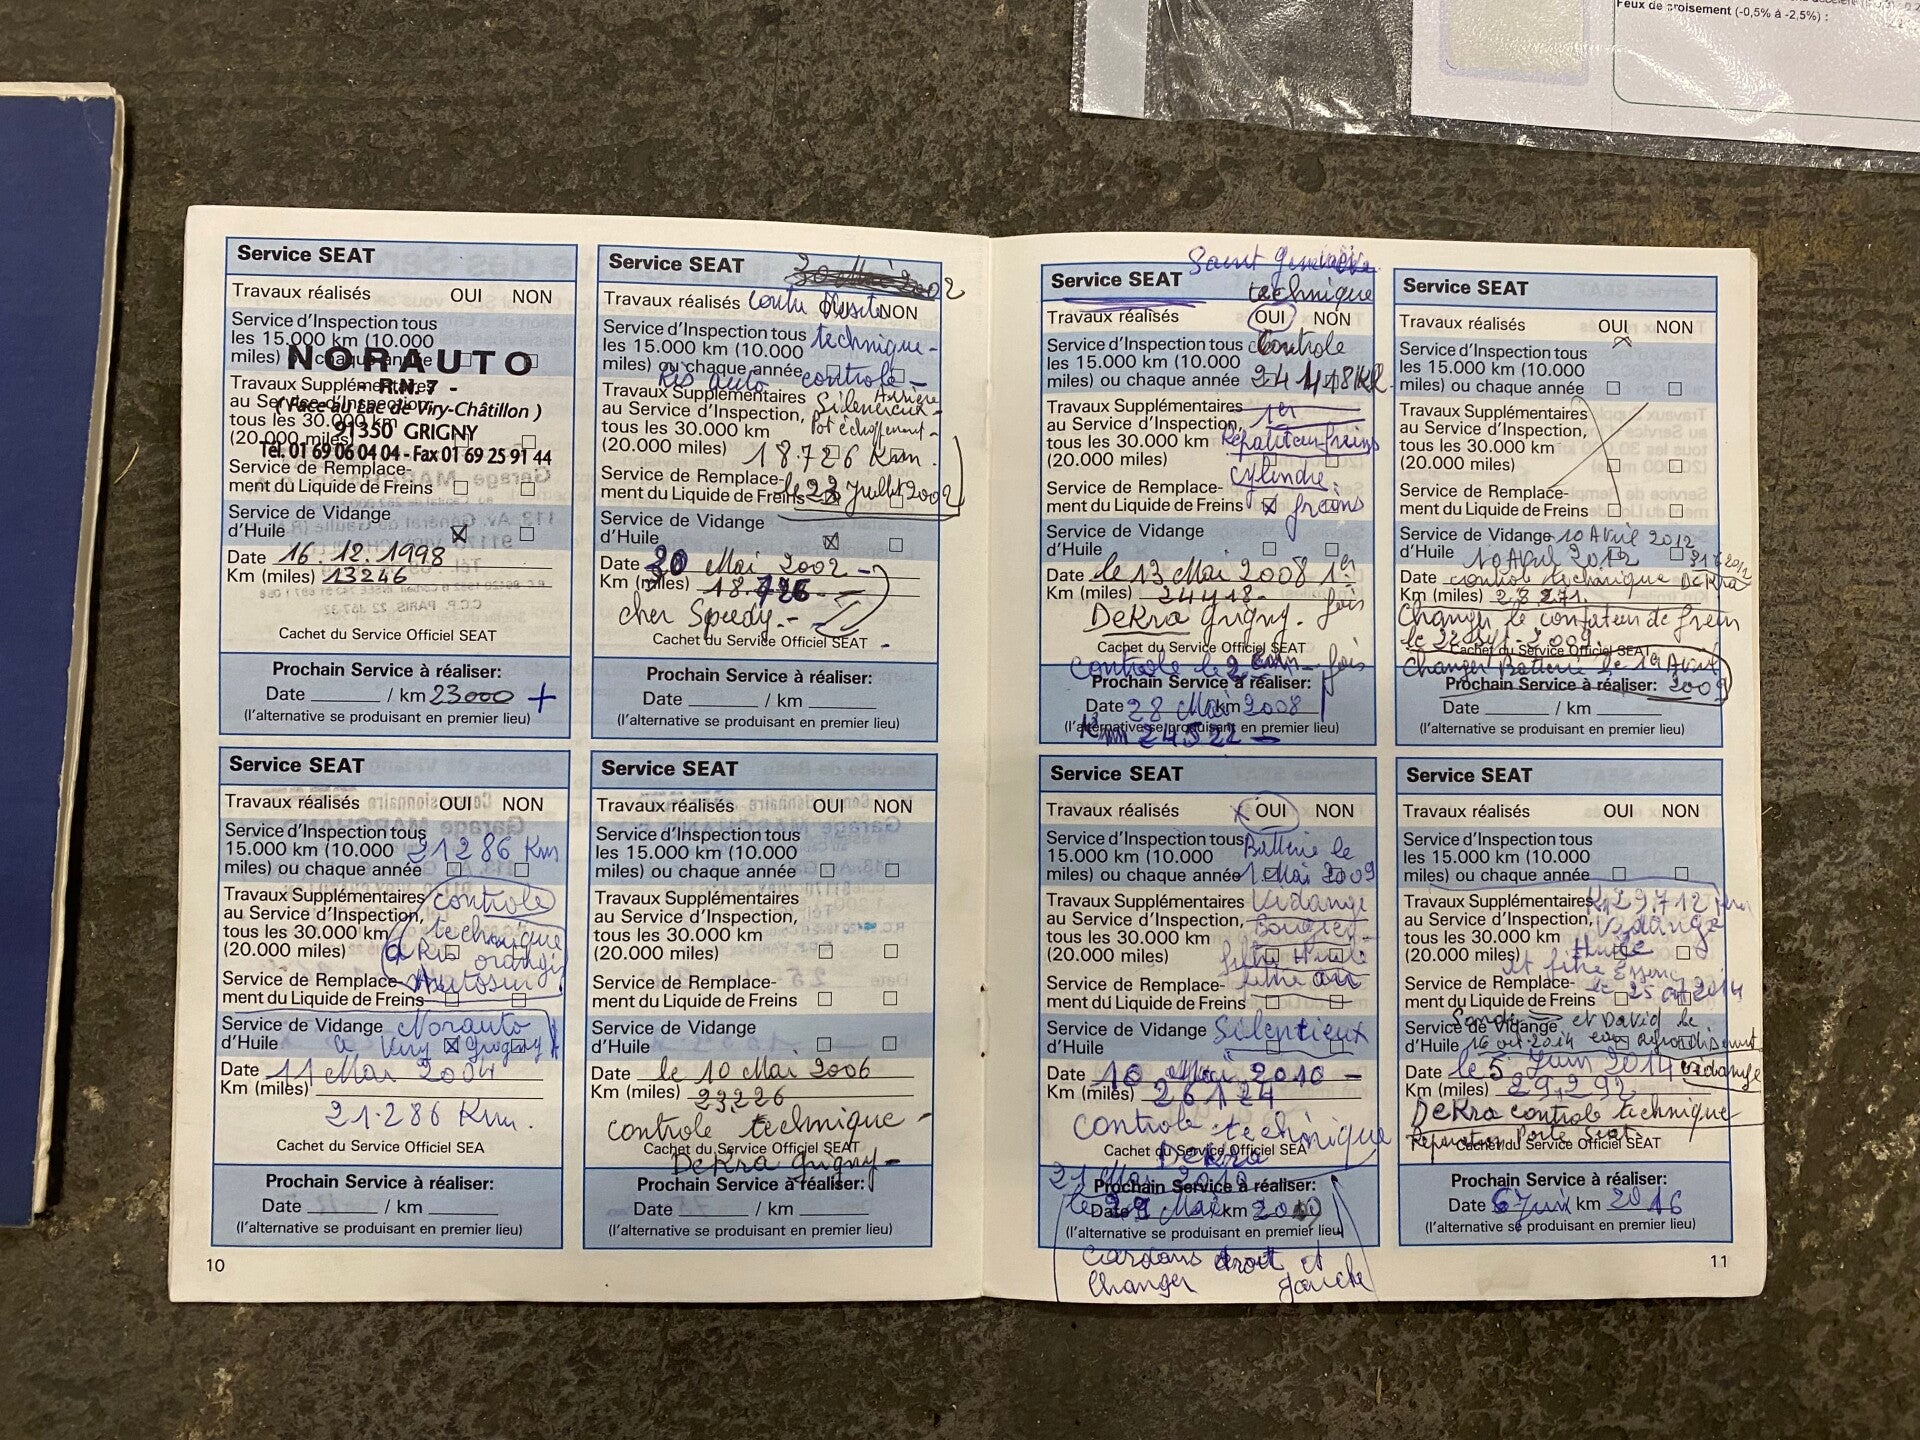 Feux de croisement (-0,5% à -2,5%) :
Service SEAT
Travaux réalisés OUI NON
Service d'Inspection tous
les 15.000 km (10.000
miles) ou chaque année
NORAUTO
- RN.7 -
(Face au Lac de Viry-Châtillon)
91350 GRIGNY
Tél. 01 69 06 04 04 - Fax 01 69 25 91 44
Travaux Supplémentaires
au Service d'Inspection,
tous les 30.000 km
(20.000 miles)
Service de Remplace-
ment du Liquide de Freins
Service de Vidange
d'Huile
Date 16.12.1998
Km (miles) 13246
Cachet du Service Officiel SEAT
Prochain Service à réaliser:
Date / km 23000 +
(l'alternative se produisant en premier lieu)
Service SEAT
30 Mai 2002
Travaux réalisés NON
Service d'Inspection tous technique -
les 15.000 km (10.000
miles) ou chaque année
Ris auto controle -
Travaux Supplémentaires Arriere
au Service d'Inspection, Silencieux -
tous les 30.000 km Pot echappement -
(20.000 miles) 18.726 Km.
Service de Remplace-
ment du Liquide de Freins le 22 Juillet 2002
Service de Vidange
d'Huile
Date 30 Mai 2002 -
Km (miles) 18.726 -
cher Speedy. -
Cachet du Service Officiel SEAT -
Prochain Service à réaliser:
Date / km
(l'alternative se produisant en premier lieu)
Service SEAT
Travaux réalisés OUI NON
Service d'Inspection tous
15.000 km (10.000 21286 Km
miles) ou chaque année
Travaux Supplémentaires controle
au Service d'Inspection,
tous les 30.000 km technique
(20.000 miles) a Ris orangis
Service de Remplace- Autosur
ment du Liquide de Freins
Service de Vidange Norauto
d'Huile a Viry Grigny
Date 11 Mai 2004
Km (miles)
21.286 Km.
Cachet du Service Officiel SEA
Prochain Service à réaliser:
Date / km
(l'alternative se produisant en premier lieu)
10
Service SEAT
Travaux réalisés OUI NON
Service d'Inspection tous
les 15.000 km (10.000
miles) ou chaque année
Travaux Supplémentaires
au Service d'Inspection,
tous les 30.000 km
(20.000 miles)
Service de Remplace-
ment du Liquide de Freins
Service de Vidange
d'Huile
Date le 10 Mai 2006
Km (miles) 23.226
controle technique -
Cachet du Service Officiel SEAT
DeKra grigny -
Prochain Service à réaliser:
Date / km
(l'alternative se produisant en premier lieu)
Saint
Service SEAT
technique
Travaux réalisés OUI NON
Service d'Inspection tous Controle
les 15.000 km (10.000
miles) ou chaque année
Travaux Supplémentaires 1er
au Service d'Inspection,
tous les 30.000 km
(20.000 miles) cylindre:
Service de Remplace-
ment du Liquide de Freins freins
Service de Vidange
d'Huile
Date le 13 Mai 2008 1er
Km (miles) 24418- fois
DeKra grigny.
Cachet du Service Officiel SEA
Controle le 2 fois
Prochain Service à réaliser:
Date 28 Mai / km 2008
(l'alternative se produisant en premier lieu)
Km 24522 -
Service SEAT
Travaux réalisés OUI NON
Service d'Inspection tous
les 15.000 km (10.000
miles) ou chaque année
Travaux Supplémentaires
au Service d'Inspection,
tous les 30.000 km
(20.000 miles)
Service de Remplace-
ment du Liquide de Freins
Service de Vidange 10 Avril 2012
d'Huile 10 Avril 2012
Date control technique DeKra
Km (miles) 28271.
Changer le de frein
le 22 2009.
Cachet du Service Officiel SEAT
Changer Batterie le 1er Avril
2009
Prochain Service à réaliser:
Date / km
(l'alternative se produisant en premier lieu)
Service SEAT
Travaux réalisés OUI NON
Service d'Inspection tous Batterie le
15.000 km (10.000
miles) ou chaque année 1 Mai 2009
Travaux Supplémentaires Vidange
au Service d'Inspection, Bougies
tous les 30.000 km
(20.000 miles) filtre Huile
Service de Remplace- filtre air
ment du Liquide de Freins
Service de Vidange Silentieux
d'Huile
Date 10 Mai 2010 -
Km (miles) 26124
Controle technique
Cachet du Service Officiel SEA
DeKra
21 Mai 2010
Prochain Service à réaliser:
Date Mai km
(l'alternative se produisant en premier lieu)
Cardans droit et
Changer gauche
Service SEAT
Travaux réalisés OUI NON
Service d'Inspection tous
les 15.000 km (10.000
miles) ou chaque année
Travaux Supplémentaires 29.712
au Service d'Inspection, Vidange
tous les 30.000 km Huile
(20.000 miles)
et
Service de Remplace-
ment du Liquide de Freins le 25 2014
et David le
Service de Vidange
d'Huile 16 oct. 2014
Date le 5 Juin 2014 vidange
Km (miles) 29.292.
DeKra controle technique
Porte Seat
Cachet du Service Officiel SEAT
Prochain Service à réaliser:
Date 6 Juin km 2016
(l'alternative se produisant en premier lieu)
11